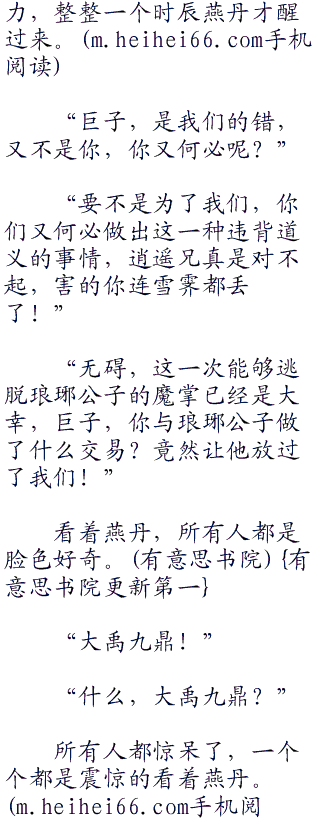 力，整整一个时辰燕丹才醒
过来。(m.heihei66.com手机
阅读)
“巨子，是我们的错，
又不是你，你又何必呢？”
“要不是为了我们，你
们又何必做出这一种违背道
义的事情，逍遥兄真是对不
起，害的你连雪霁都丢
了！”
“无碍，这一次能够逃
脱琅琊公子的魔掌已经是大
幸，巨子，你与琅琊公子做
了什么交易？竟然让他放过
了我们！”
看着燕丹，所有人都是
脸色好奇。(有意思书院) {有
意思书院更新第一}
“大禹九鼎！”
“什么，大禹九鼎？”
所有人都惊呆了，一个
个都是震惊的看着燕丹。
(m.heihei66.com手机阅